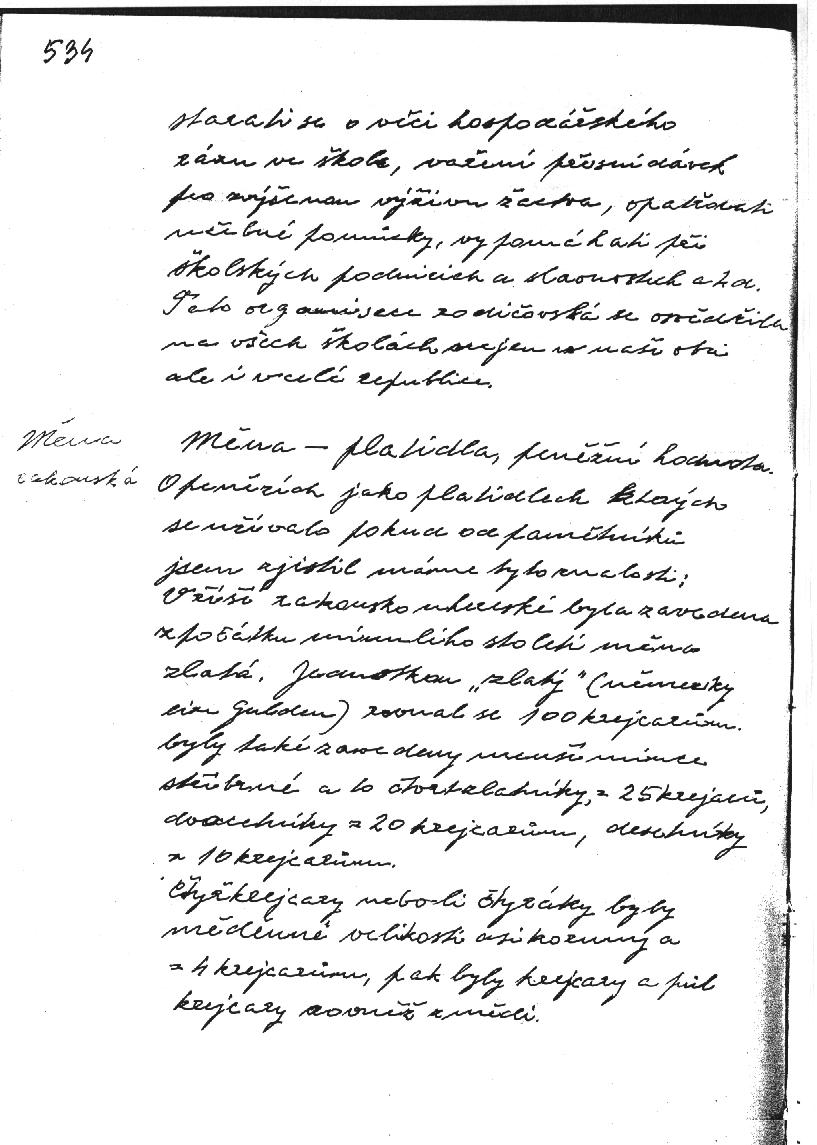 534
starati se o věci hospodářského
rázu ve škole, vaření přesnídávek
pro zvýšenou výživu žactva, opatřovati
učebné pomůcky, vypomáhati při
školských podnicích a slavnostech a t. d.
Tato organisace rodičovská se osvědčila
na všech školách nejen v naší obci
ale i v celé republice.
Měna
rakouská
Měna – platidla, peněžní hodnota.
O penězích jako platidlech kterých
se užívalo pokud od pamětníků
jsem zjistil máme tyto znalosti:
V říši rakousko uherské byla zavedena
z počátku minulého století měna
zlatá. Jednotkou „zlatý" (německy
ein Gulden) rovnal se 100 krejcarům.
byly také zavedeny menší mince
stříbrné a to čtvrtzlatníky, = 25 krejcarů,
dvacetníky = 20 krejcarům, desetníky
= 10 krejcarům.
Čtyřkrejcary neboli čtyráky byly
měděnné velikosti asi koruny a
= 4 krejcarům, pak byly krejcary a půl
krejcary rovněž z mědi.